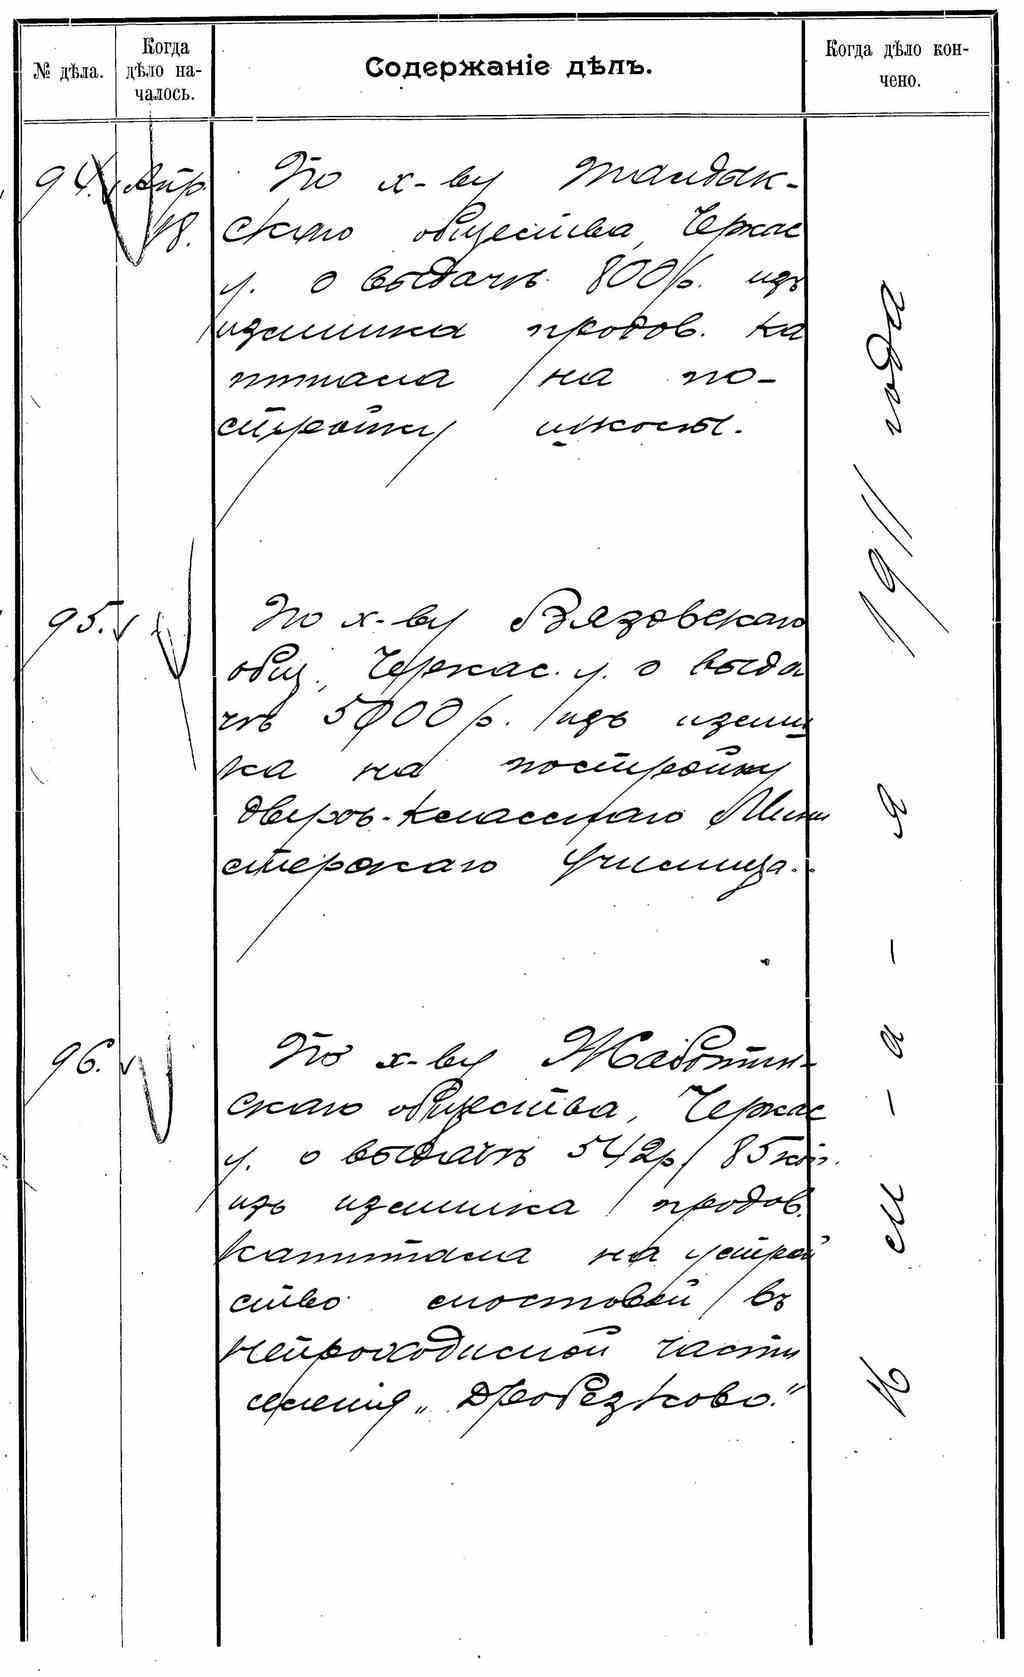 № дѣла.
Когда
дѣло на-
чалось.
Содержаніе дѣлъ.
Когда дѣло кон-
чено.
94. Апр
18.
По х-ву
скаго общества, Черкас
у. о выдачѣ 800 р. изъ
излишка продов. ка
питала на по-
стройку школы.
95.
По х-ву Вязовскаго
общ., Черкас. у. о выда
чѣ 5000 р. изъ излиш
ка на постройку
двухъ-класснаго Мини
стерскаго Училища.
96.
По х-ву Жаботин-
скаго общества, Черкас
у. о выдачѣ 542 р. 85 коп.
изъ излишка продов.
капитала на устрой
ство мостовой въ
непроходимой части
селенія
1911 года